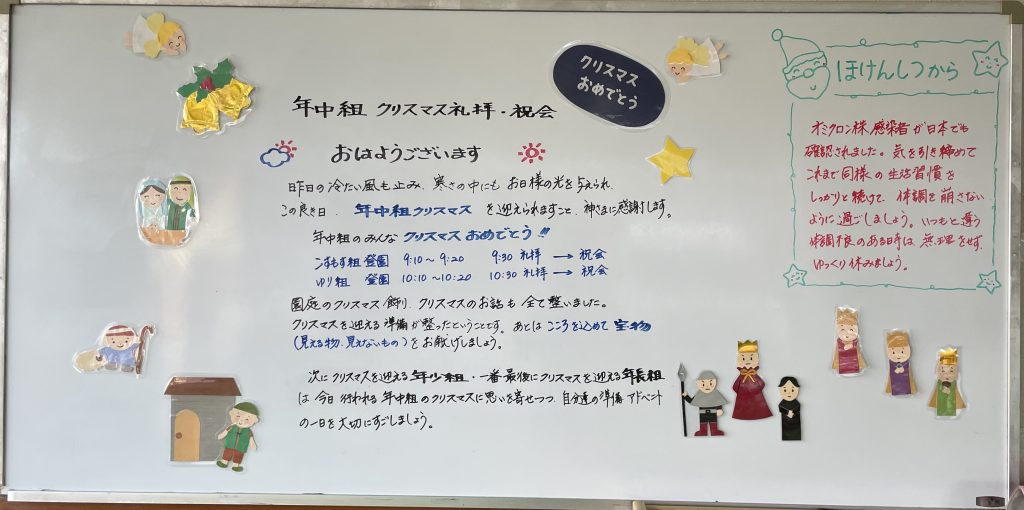 クリスマス
おめでとう
年中組 クリスマス礼拝・祝会
おはようございます
昨日の冷たい風も止み、寒さの中にも お日様の光を与えられ、
この良き日、年中組クリスマス を迎えられますこと、神さまに感謝します。
年中組のみんな クリスマス おめでとう!!
こすもす組 登園 9:10〜9:20 9:30 礼拝 → 祝会
ゆり組 登園 10:10〜10:20 10:30 礼拝 → 祝会
園庭のクリスマス飾り、クリスマスのお話も 全て整いました。
クリスマスを迎える準備が整ったということです。あとは こころを込めて 宝物
(見える物・見えないもの)をお献げしましょう。
次にクリスマスを迎える年少組・一番最後にクリスマスを迎える年長組
は 今日 行われる 年中組のクリスマスに思いを寄せつつ、自分達の準備 アドベント
の一日を大切にすごしましょう。
ほけんしつから
オミクロン株 感染者が日本でも
確認されました。気を引き締めて
これまで同様の生活習慣を
しっかりと続けて、体調を崩さない
ように過ごしましょう。いつもと違う
体調 のある時は 無理をせず、
ゆっくり休みましょう。